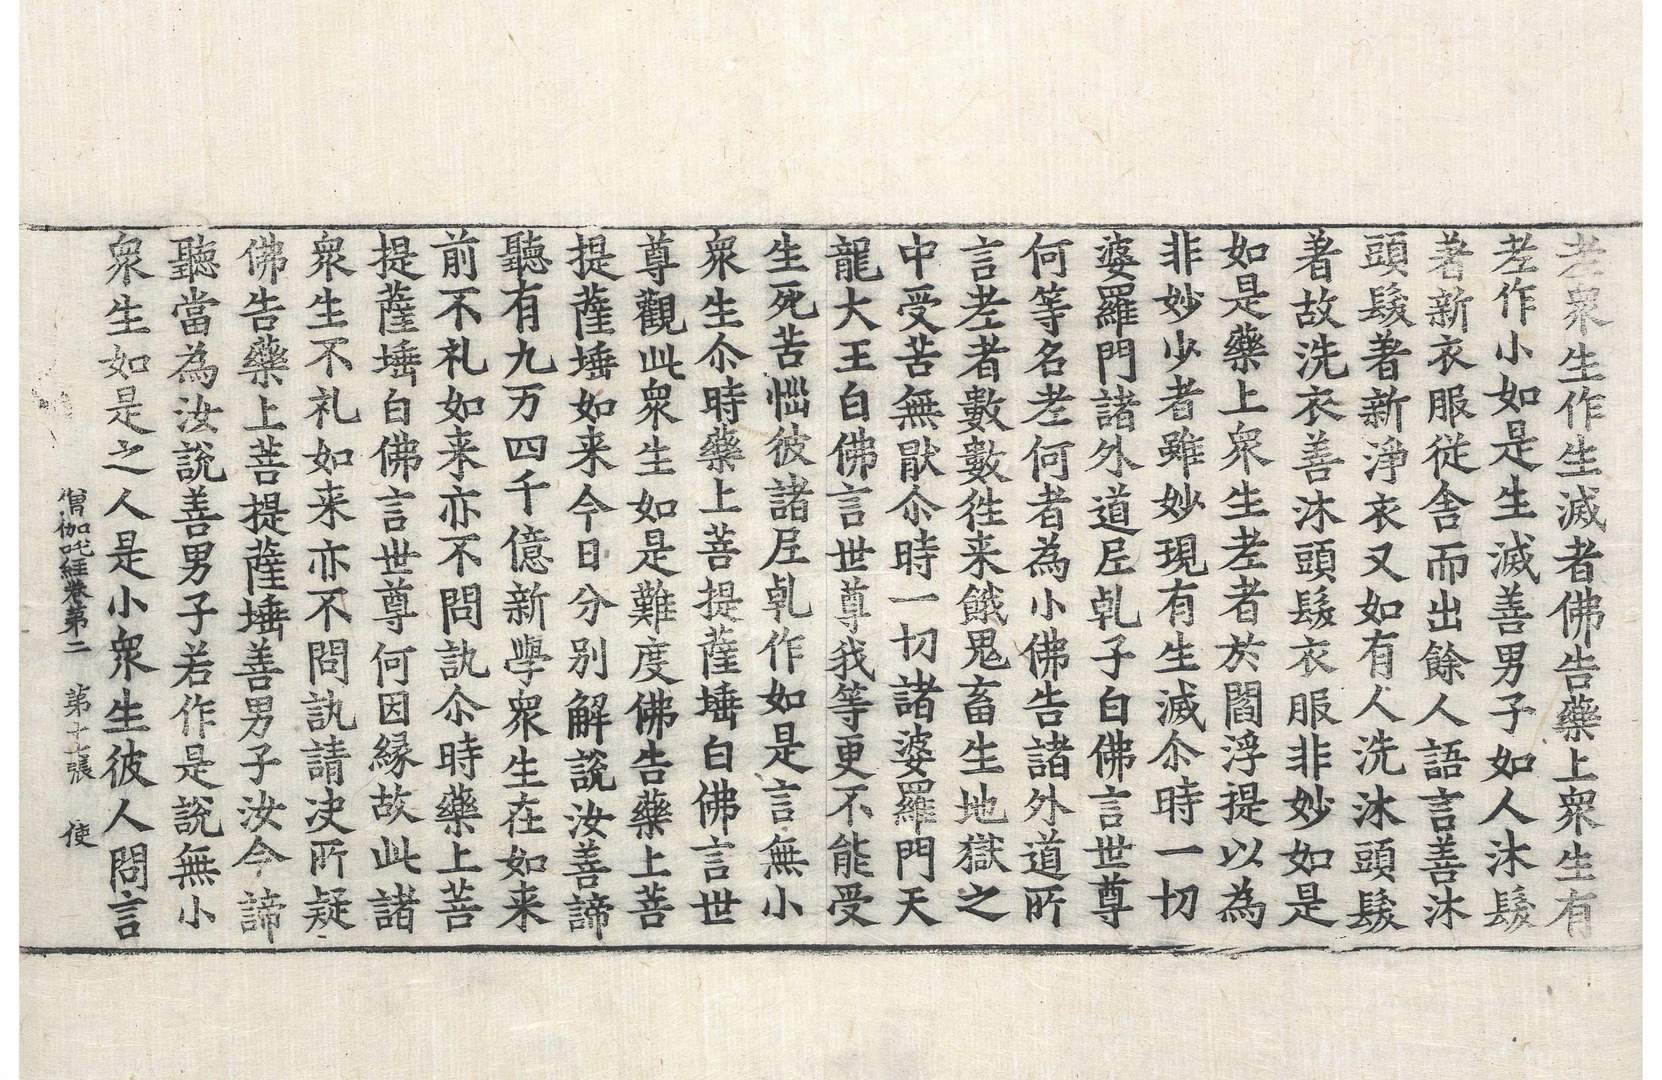 老眾生作生滅者佛告藥上眾生有
老作小如是生滅善男子如人沐髮
著新衣服從舍而出餘人語言善沐
頭髮著新淨衣又如有人洗沐頭髮
著故洗衣善沐頭髮衣服非妙如是
如是藥上眾生老者於閻浮提以為
非妙少者雖妙現有生滅尒時一切
婆羅門諸外道尼乹子白佛言世尊
何等名老何者為小佛告諸外道所
言老者數數往来餓鬼畜生地獄之
中受苦無猒尒時一切諸婆羅門天
龍大王白佛言世尊我等更不能受
生死苦惱彼諸尼乹作如是言無小
眾生尒時藥上菩提薩埵白佛言世
尊觀此眾生如是難度佛告藥上菩
提薩埵如来今日分別解說汝善諦
聽有九万四千億新學眾生在如来
前不礼如来亦不問訊尒時藥上菩
提薩埵白佛言世尊何因緣故此諸
眾生不礼如来亦不問訊請决所疑
佛告藥上菩提薩埵善男子汝今諦
聽當為汝說善男子若作是說無小
眾生如是之人是小眾生彼人問言
僧伽吒經卷第二 第十張 使